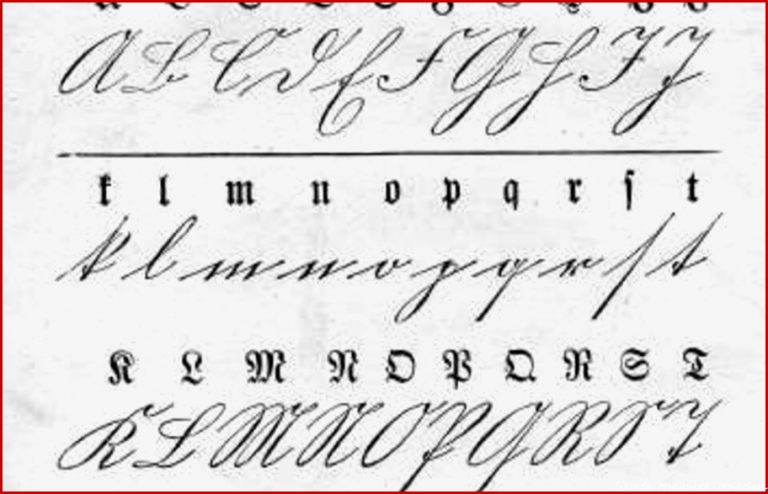 A B C D E F G H I J
k l m n o p q r ſ t
k l m n o p q r ſ t
K L M N O P Q R S T
K L M N O P Q R S T